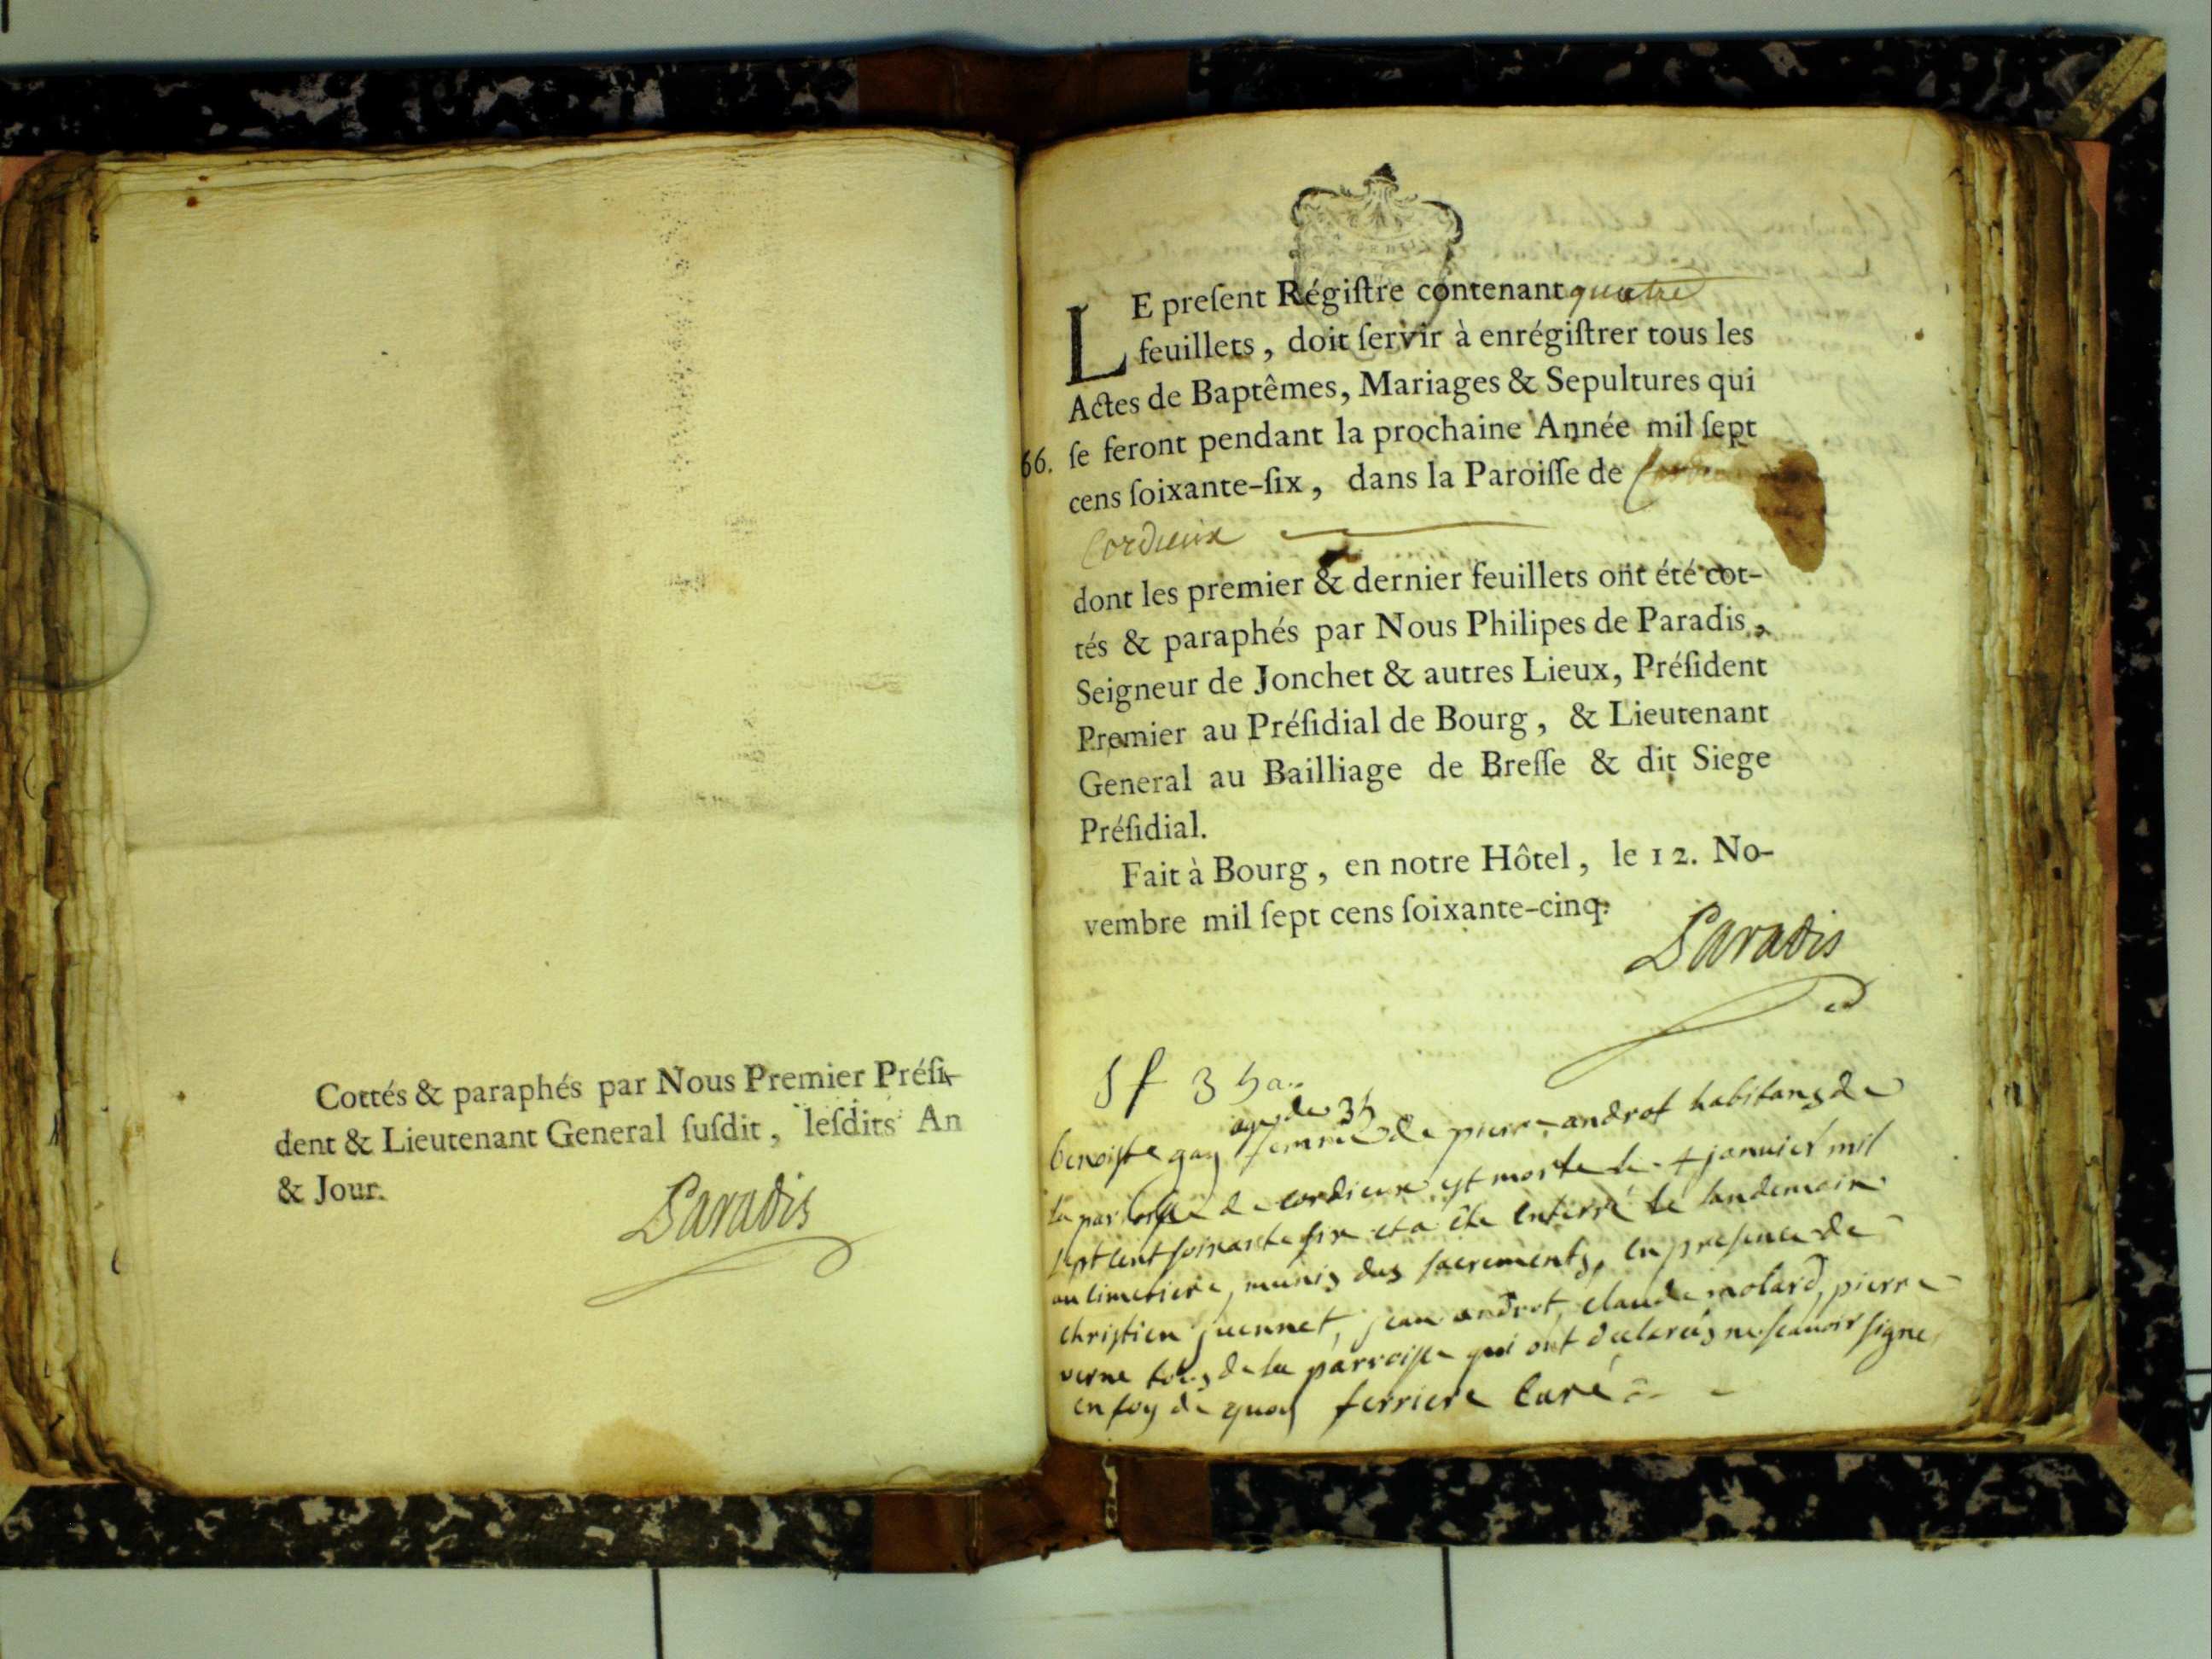 Cottés & paraphés par Nous Premier Préſi-
dent & Lieutenant General ſuſdit, leſdits An
& Jour.
Paradis
LE preſent Régiſtre contenant quatre
feuillets, doit ſervir à enrégiſtrer tous les
Actes de Baptêmes, Mariages & Sepultures qui
66. ſe feront pendant la prochaine Année mil ſept
cens ſoixante-ſix, dans la Paroiſſe de
Cordieux
dont les premier & dernier feuillets ont été cot-
tés & paraphés par Nous Philipes de Paradis,
Seigneur de Jonchet & autres Lieux, Préſident
Premier au Préſidial de Bourg, & Lieutenant
General au Bailliage de Breſſe & dit Siege
Préſidial.
Fait à Bourg, en notre Hôtel, le 12. No-
vembre mil ſept cens ſoixante-cinq.
Paradis
Sf 35 a..
age de 35
benoiste gay femme de pierre androt habitans de
la parroisse de cordieux est morte le 4 janvier mil
sept cent soixante six et a été enterré le landemain
au cimetiere, munis des sacrements, en presence de
christien juennet, jean androt, claude molard, pierre
verne tous de la parroisse qui ont declarés ne scavoir signe
en foy de quoy ferriere curé